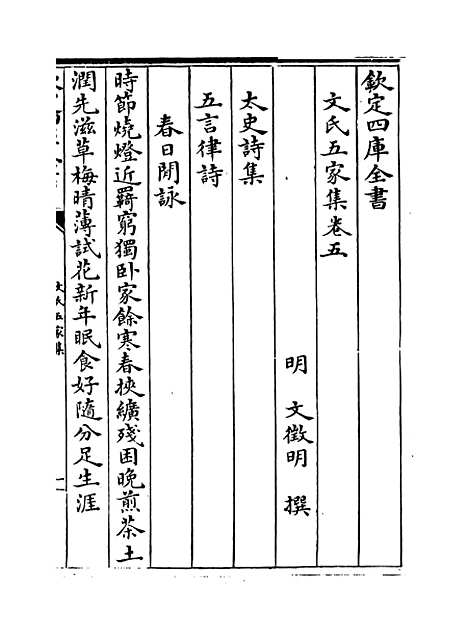 欽定四庫全書
文氏五家集卷五
明 文徵明 撰
太史詩集
五言律詩
春日閒詠
時節燒燈近羇窮獨卧家餘寒春挾纊殘困晚煎茶土
潤先滋草梅晴薄試花新年眠食好隨分足生涯
文氏五家集
一